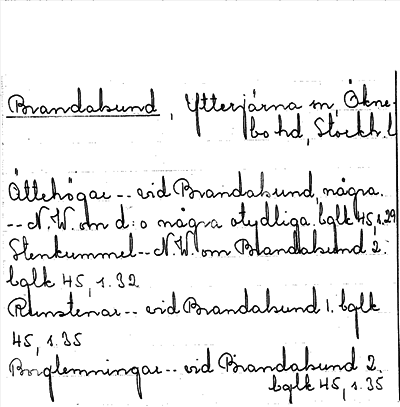 Brandalsund, Ytterjärna sn, Ökne-
bo hd, Stockh. l
Ättehögar -- vid Brandalsund, några.
-- N.W. om d:o några otydliga. bglk 45, s.29
Stenkummel -- N.W. om Brandalsund 2.
bglk 45, s.32
Runstenar -- vid Brandalsund 1. bglk
45, s.35
Borglemningar -- vid Brandalsund 2.
bglk 45, s.35